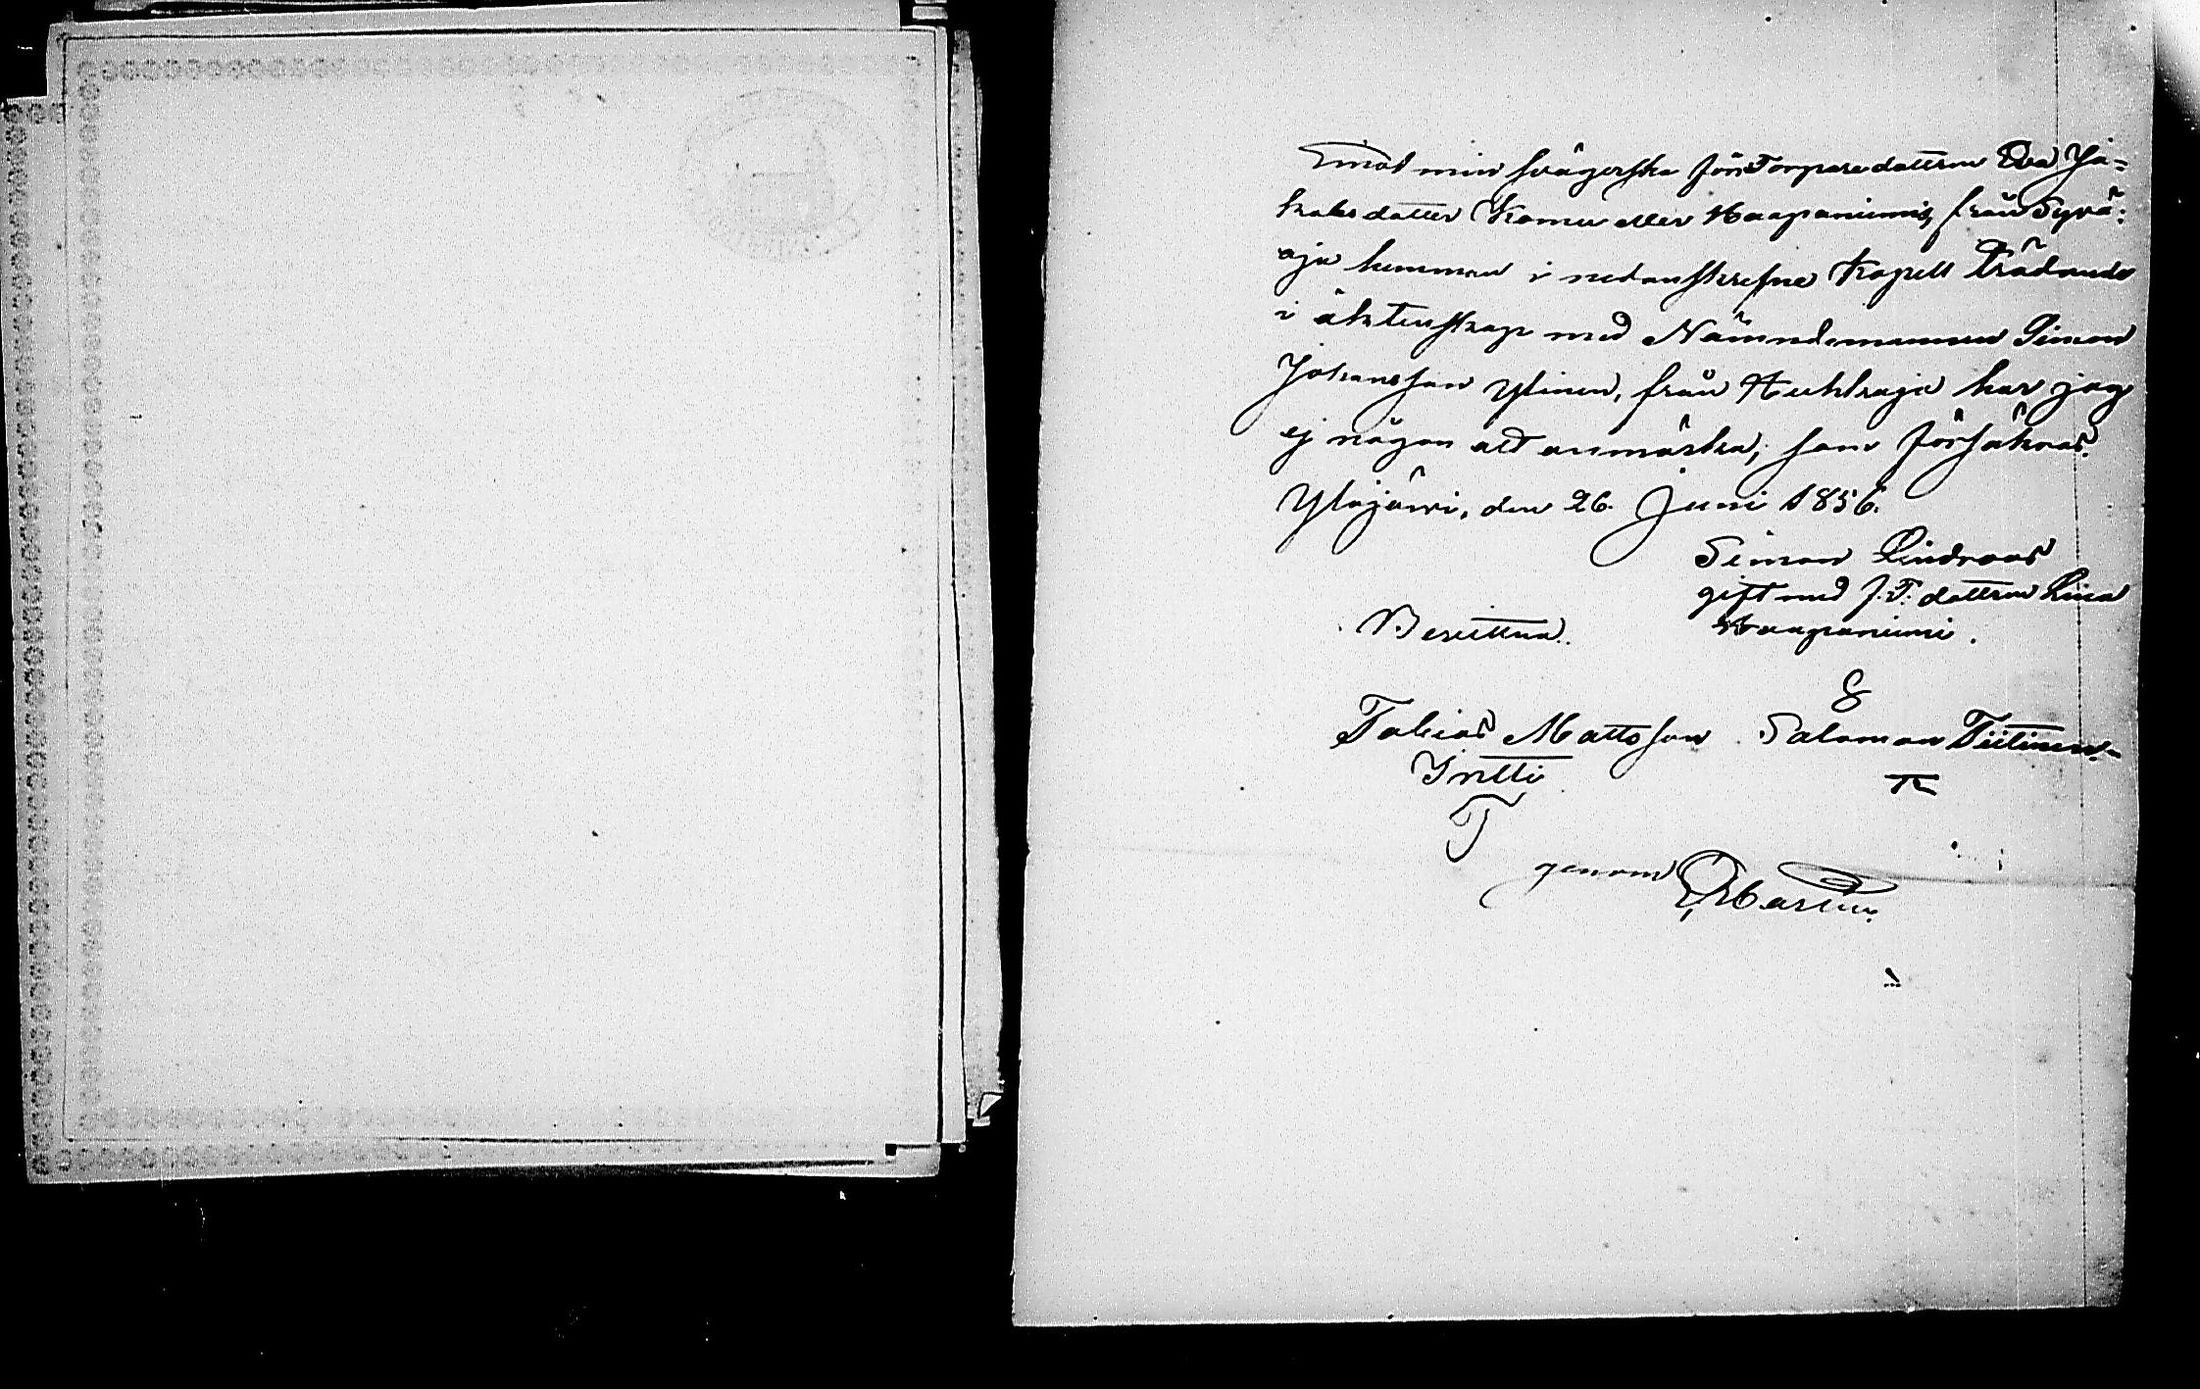 Emot min svägerska förr Torparedottren Eva Ja=
kobsdotter Komu eller Haapaniemis, från Syvä=
oja hemman i nedanskrefne Kapell trädande
i äktenskap med Nämndemannen Simon
Johansson Ylinen, från Huhkaja har jag
ej någon att anmärka; som försäkras.
Ylöjärvi, den 26. Juni 1856.
Simon Lindroos
gift med f. T. dottren Lisa
Haapaniemi.
Bevittna.
8
Tobias Mattsson Salomon Tiitinen.
Yntti
T
genom